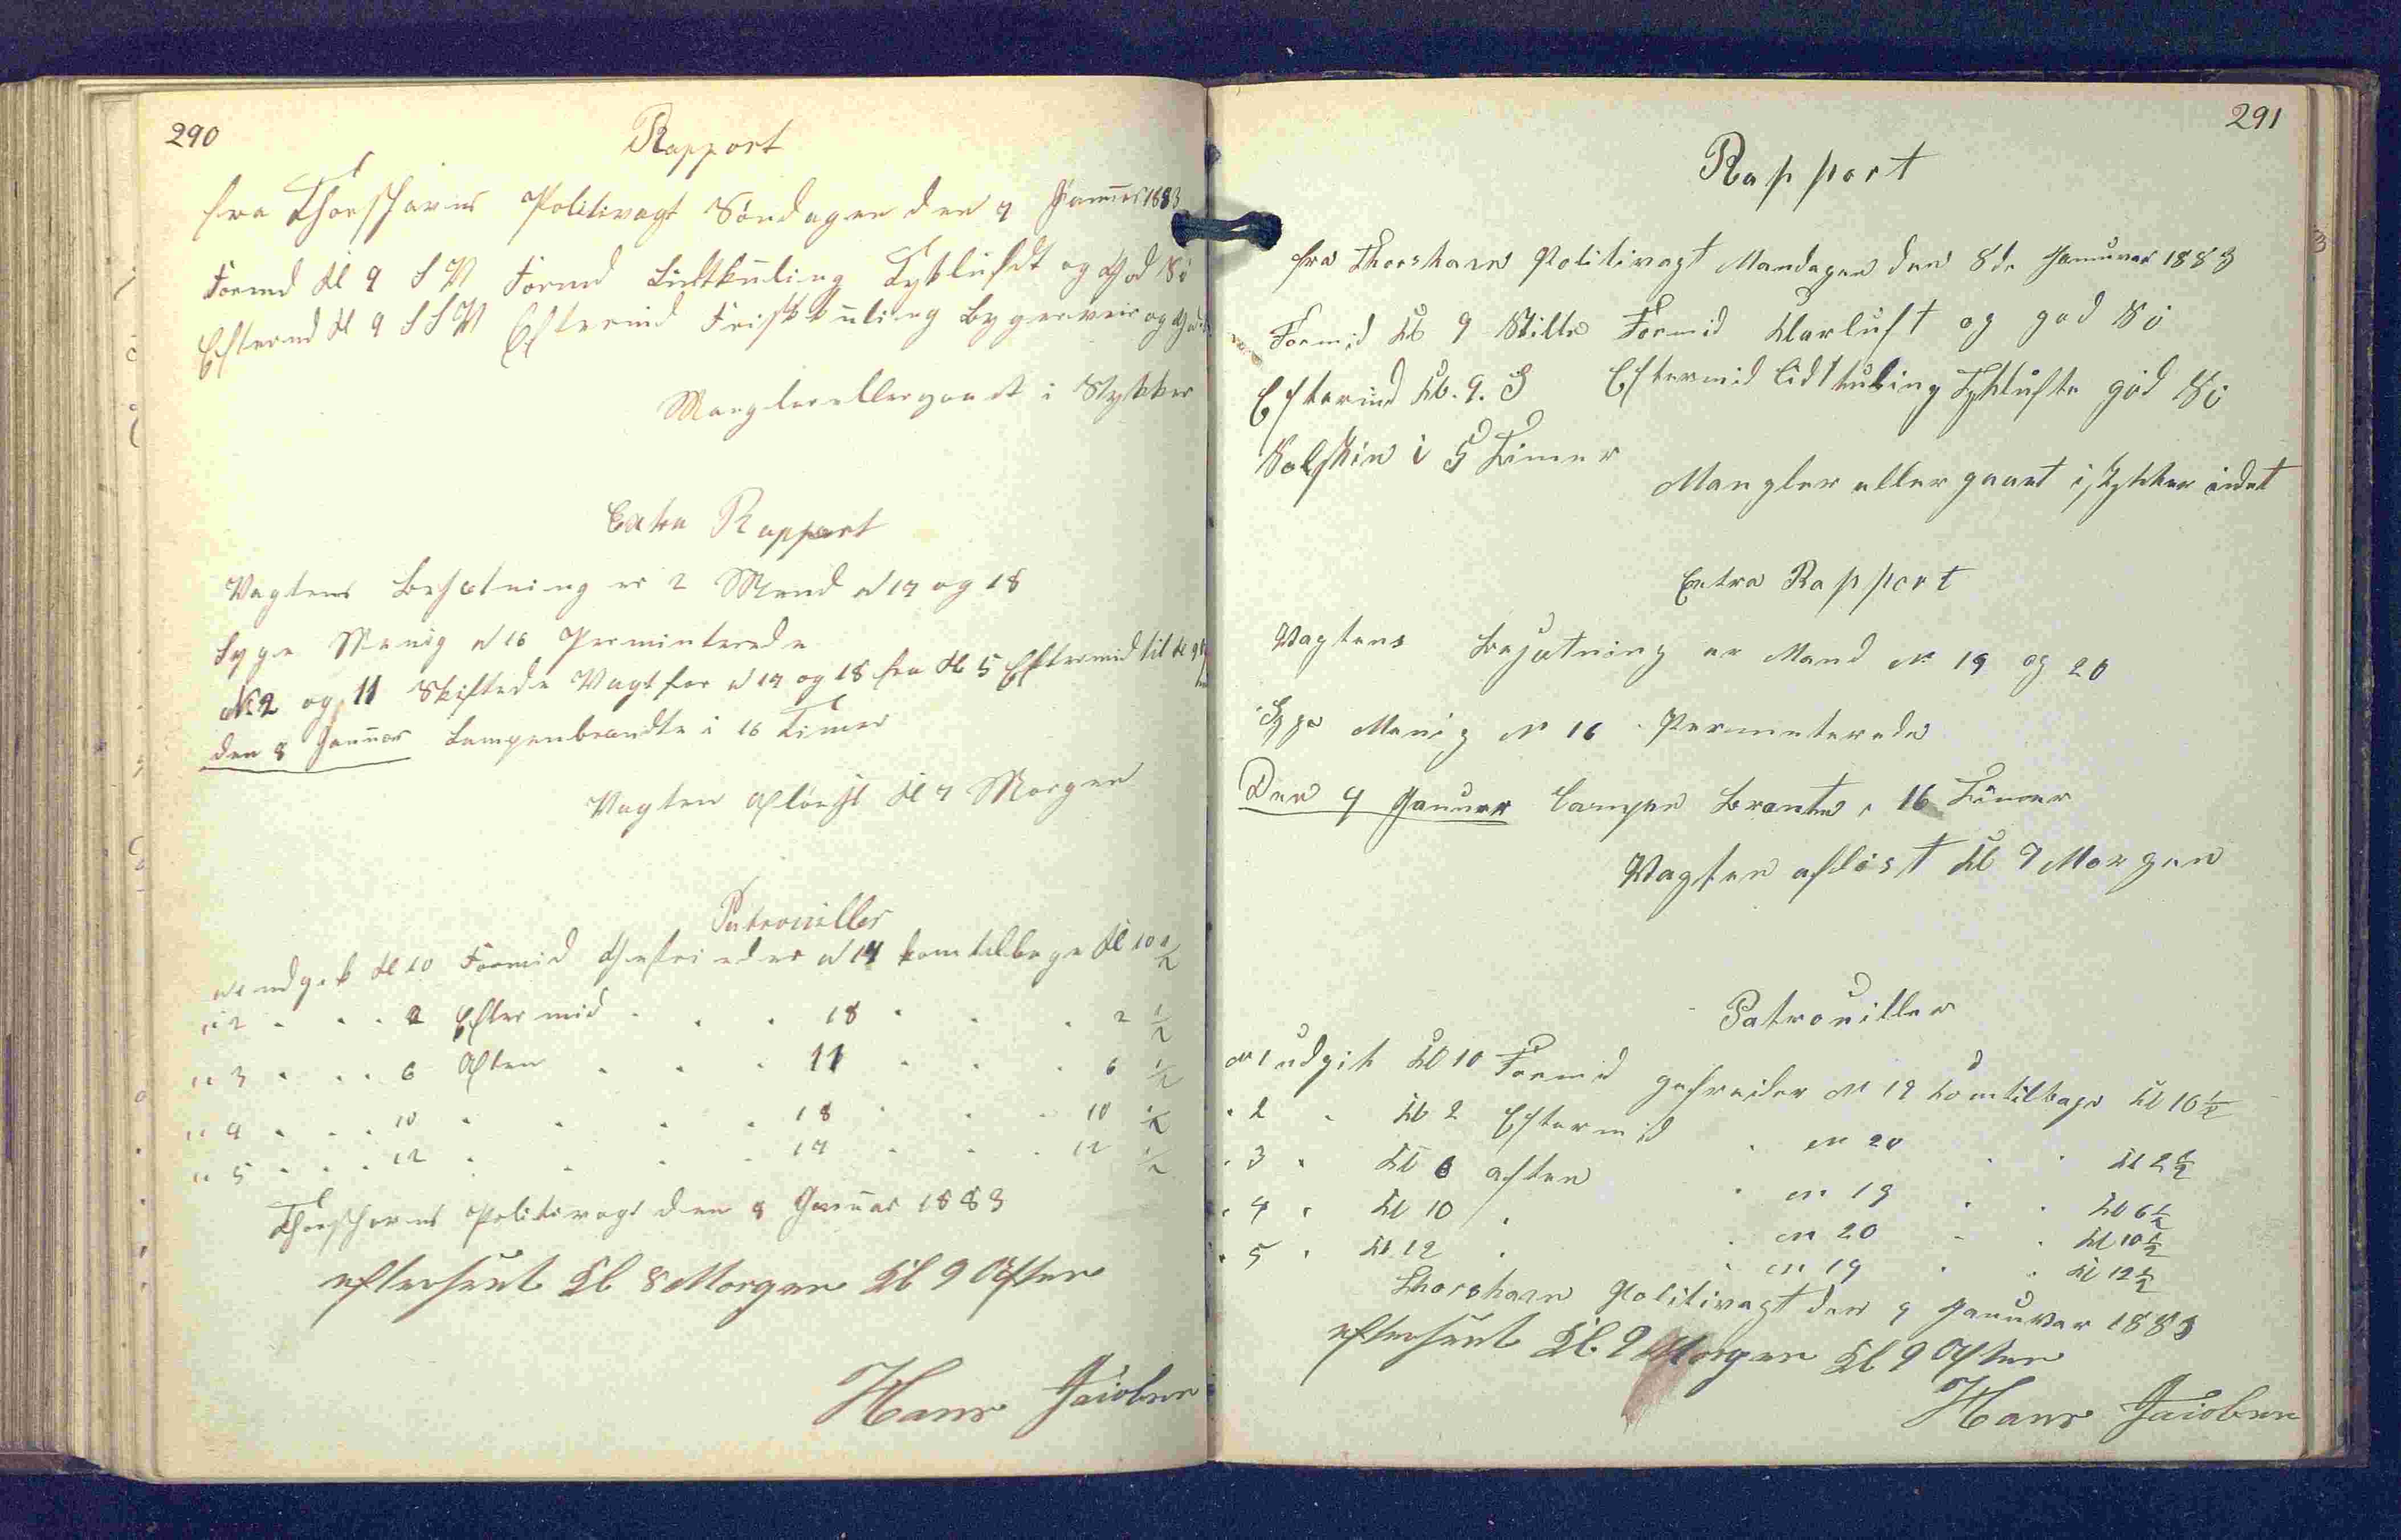 290
Rapport
fra Thorshavns Politivagt Söndagen den 7 Januar 1883
Formd Kl 9 S V Formd Lidtkuling Tykluft og God Sö
Eftermd Kl 9 S S V Eftermid Friskkuling Bygerveir og God
Mangler eller gaaet i Stykker
Extra Rapport
Vagtens Besætning er 2 Mand N 17 og 18
Syge Menig N 16 Perminterede
N 2 og 11 Skiftede Vagt for N 17 og 18 fra Kl 5 Eftermid til Kl 9
den 8 Januar Lampen brændte i 16 Timer
Vagten Aflöst Kl 9 Morgen
Patrouiller
N 1 udgik Kl 10 Formid Gefreider N 17 kom tilbage Kl 10 1/2
" 2 " " " 2 Eftermid " " " 18 " " " 2 1/2
" 3 " " " 6 Aften " " " 11 " " " 6 1/2
" 4 " " " 10 " " " " 18 " " " 10 1/2
" 5 " " " 12 " " " " 17 " " " 12 1/2
Thorshavns Politivagt den 8 Januar 1883
efterseet Kl 8 Morgen Kl 9 Aften
Hans Jacobsen
291
Rapport
fra Thorshavn Politivagt Mandagen den 8de Januar 1883
Formid Kl 9 Stille Formid Klarluft og god Sö
Eftermd Kl. 9. S Eftermid Lidtkuling Tykluft god Sö
Solskin i 5 Timer
Mangler eller gaaet i stykker intet
Extra Rapport
Vagtens Besætning er Mand N 19 og 20
Syge Menig N 16 Perminterede
Den 9 Januar Lampen Brænte i 16 Timer
Vagten aflöst Kl 9 Morgen
Patrouiller
N 1 udgik Kl 10 Formid gefreider N 19 kom tilbage Kl 10 1/2
" 2 " Kl 2 Eftermid " N 20 " " Kl 2 1/2
" 3 " Kl 6 aften " N 19 " " Kl 6 1/2
" 4 " Kl 10 " " N 20 " " Kl 10 1/2
" 5 " Kl 12 " " N 19 " " Kl 12 1/2
Thorshavn Politivagt den 9 Januar 1883
efterseet Kl. 9 Morgen Kl 9 Aften
Hans Jacobsen